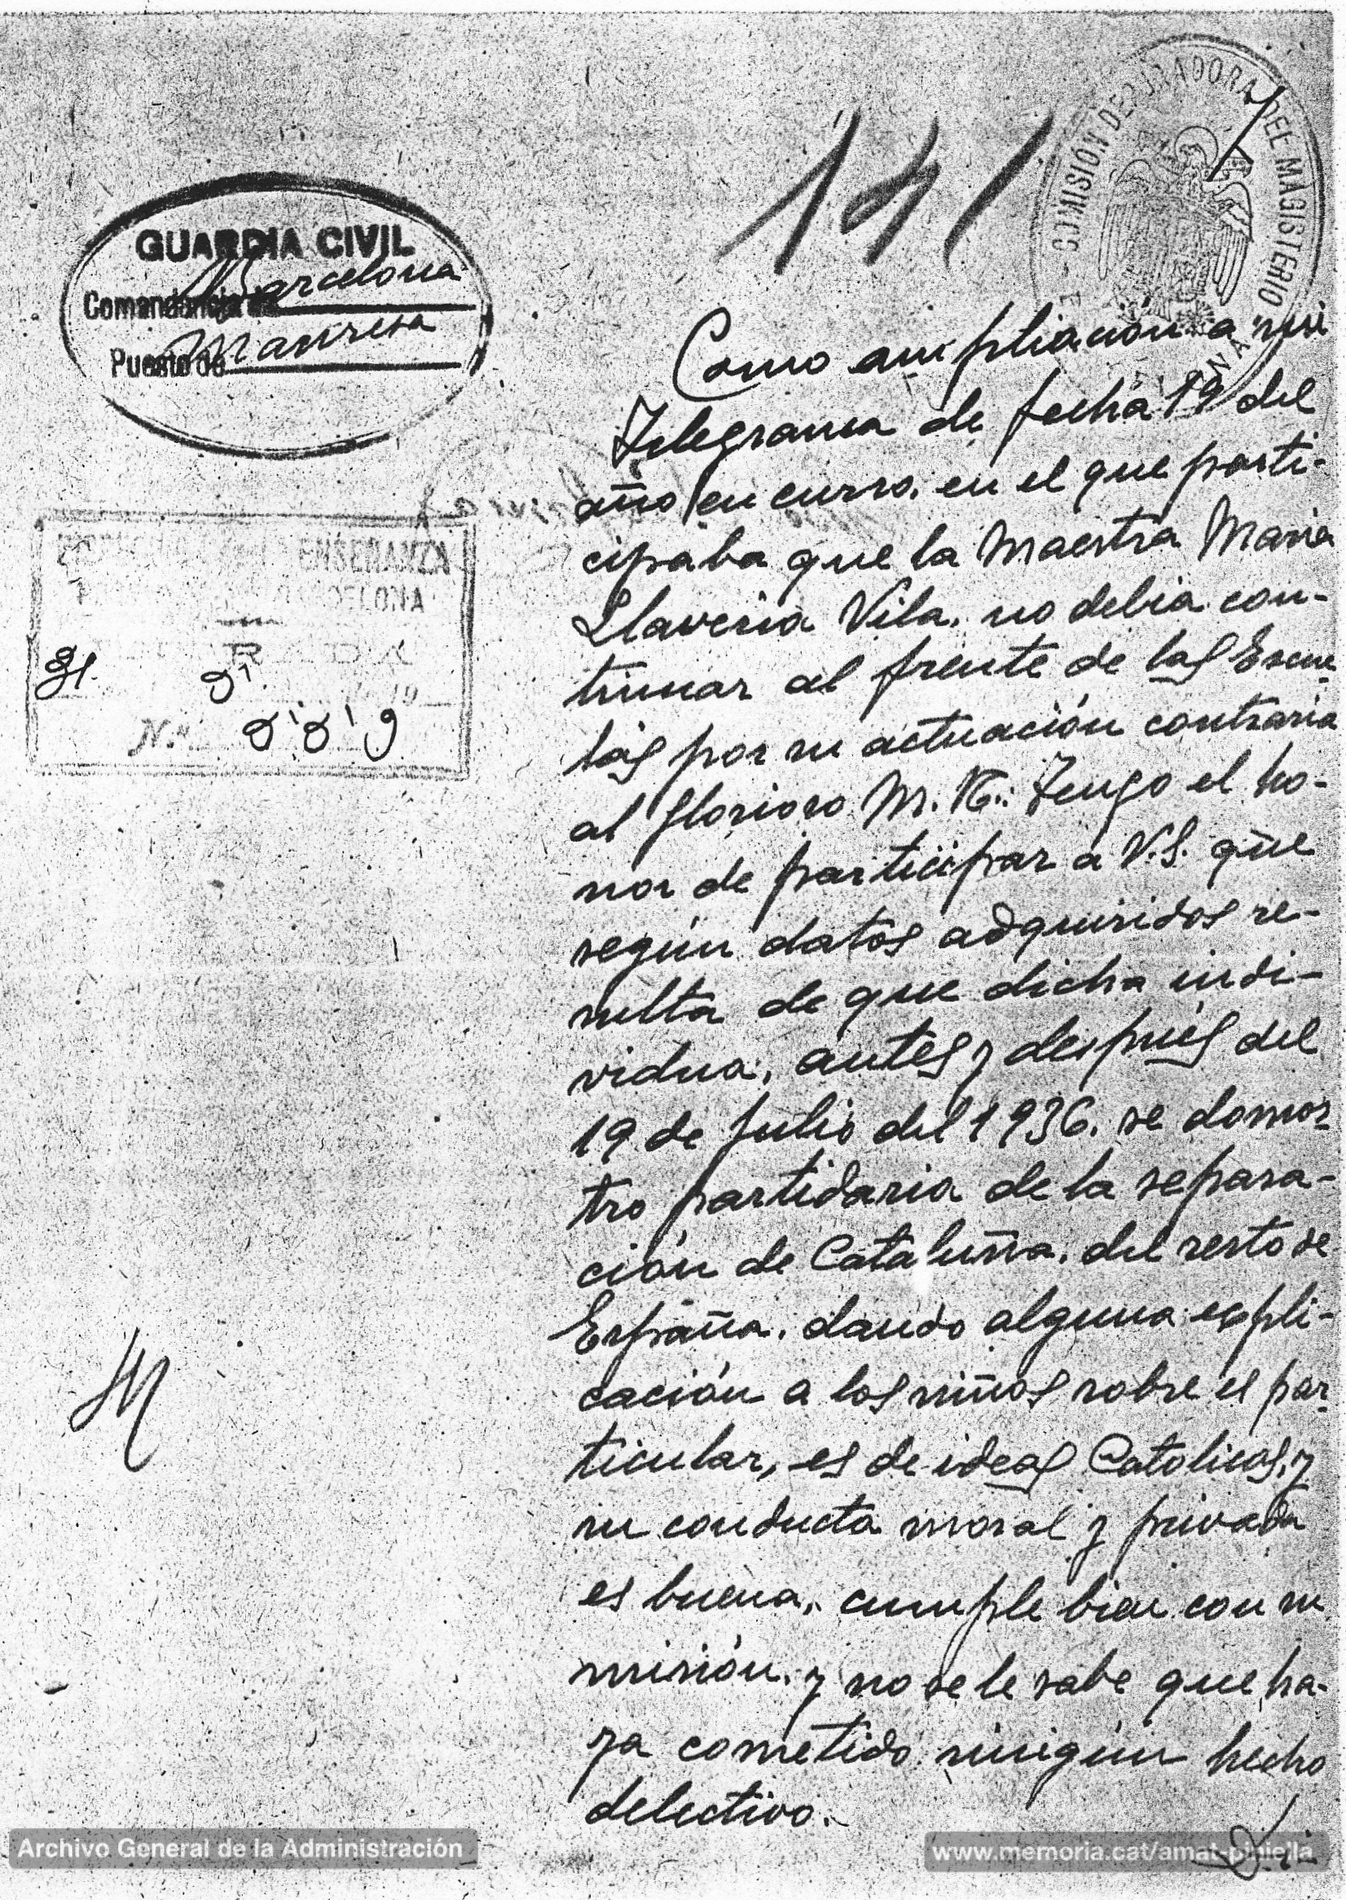 COMISIÓN DEPURADORA DEL MAGISTERIO
141
GUARDIA CIVIL
Comandancia de Barcelona
Puesto de Manresa
ENSEÑANZA
BARCELONA
31
N.º
Como ampliación a mi
Telegrama de fecha 19 del
año en curso, en el que parti-
cipaba que la Maestra Maria
Llaveria Vila, no debia con-
tinuar al frente de las Escue
las por su actuación contraria
al glorioso M. N.: Tengo el ho-
nor de participar a V.S. que
según datos adquiridos re-
sulta de que dicha indi-
vidua, antes y después del
19 de Julio del 1936. se domos-
tro partidaria de la separa-
ción de Cataluña, del resto de
España, dando alguna expli-
cación a los niños sobre el par-
ticular, es de ideas Catolicas, y
su conducta moral y privada
es buena, cumple bien con su
misión, y no se le sabe que ha-
ya cometido ningún hecho
delectivo.
Archivo General de la Administración
www.memoria.cat/amat-piniella